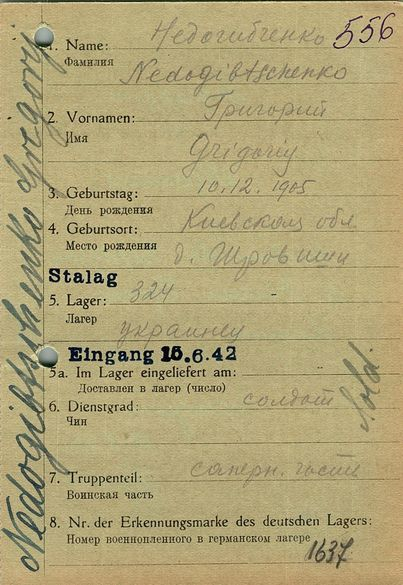 556
1. Name: Недогибченко
Фамилия
Nedogibtschenko
2. Vornamen: Григорий
Имя
Grigoriy
3. Geburtstag: 10.12.1905
День рождения
4. Geburtsort: Киевской обл
Место рождения
д.
Stalag
5. Lager: 324
Лагер
украинец
Eingang 15.6.42
5a. Im Lager eingeliefert am:
Доставлен в лагер (число)
6. Dienstgrad: солдат
Чин
Sold.
7. Truppenteil: саперн. часть
Воинская часть
8. Nr. der Erkennungsmarke des deutschen Lagers:
Номер военнопленного в германском лагере
1637
Nedogibtschenko Gregorj